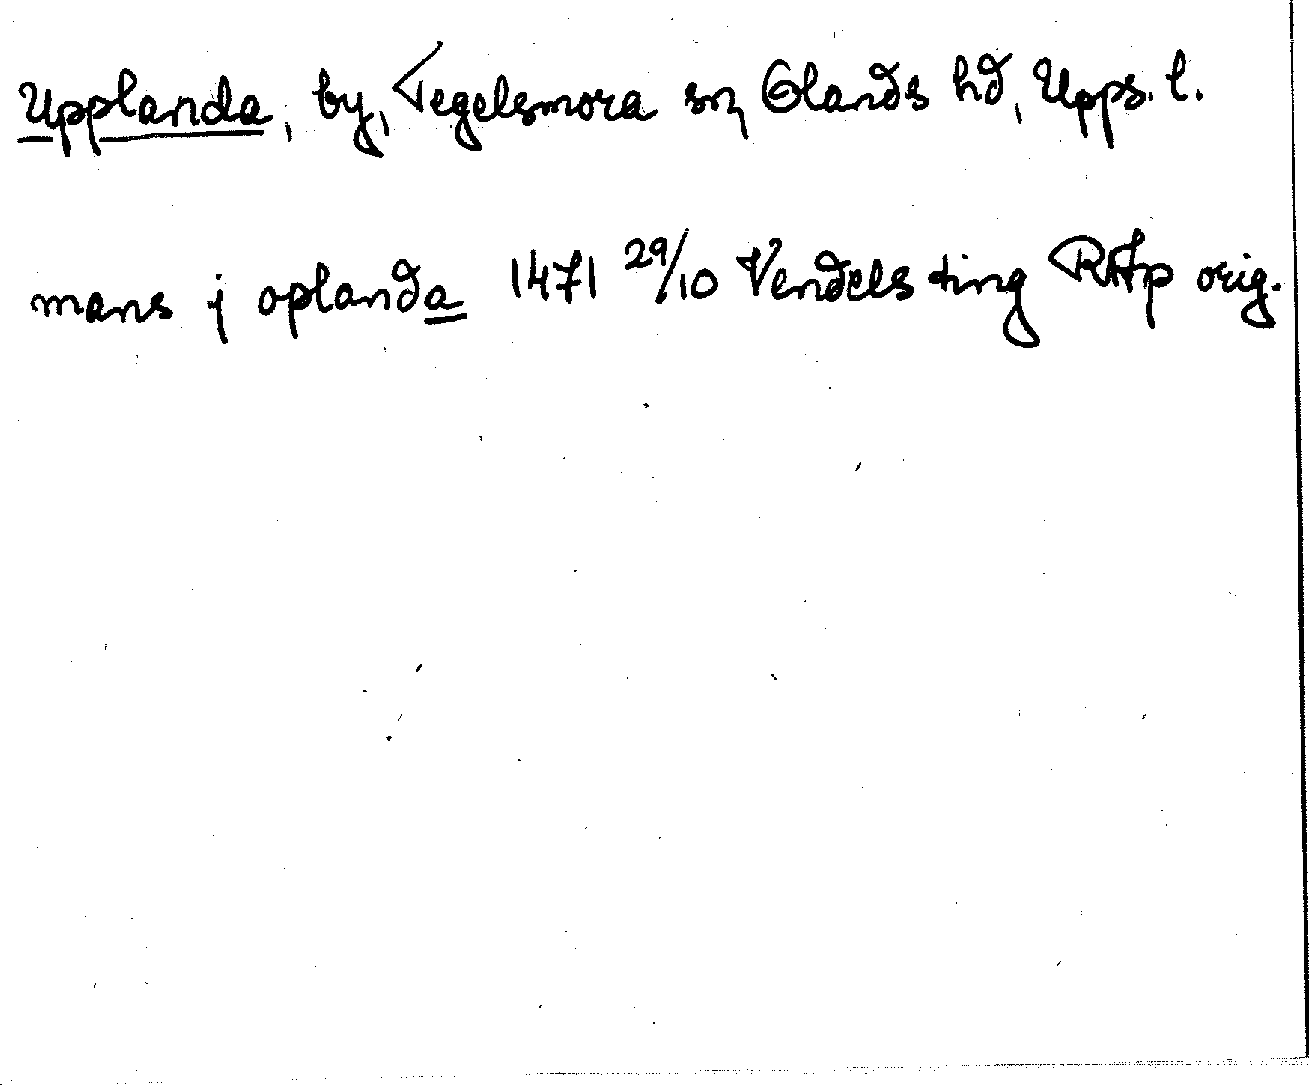 Upplanda, by, Tegelsmora sn Olands hd, Upps. l.
mans j oplanda 1471 29/10 Vendels ting RAp orig.